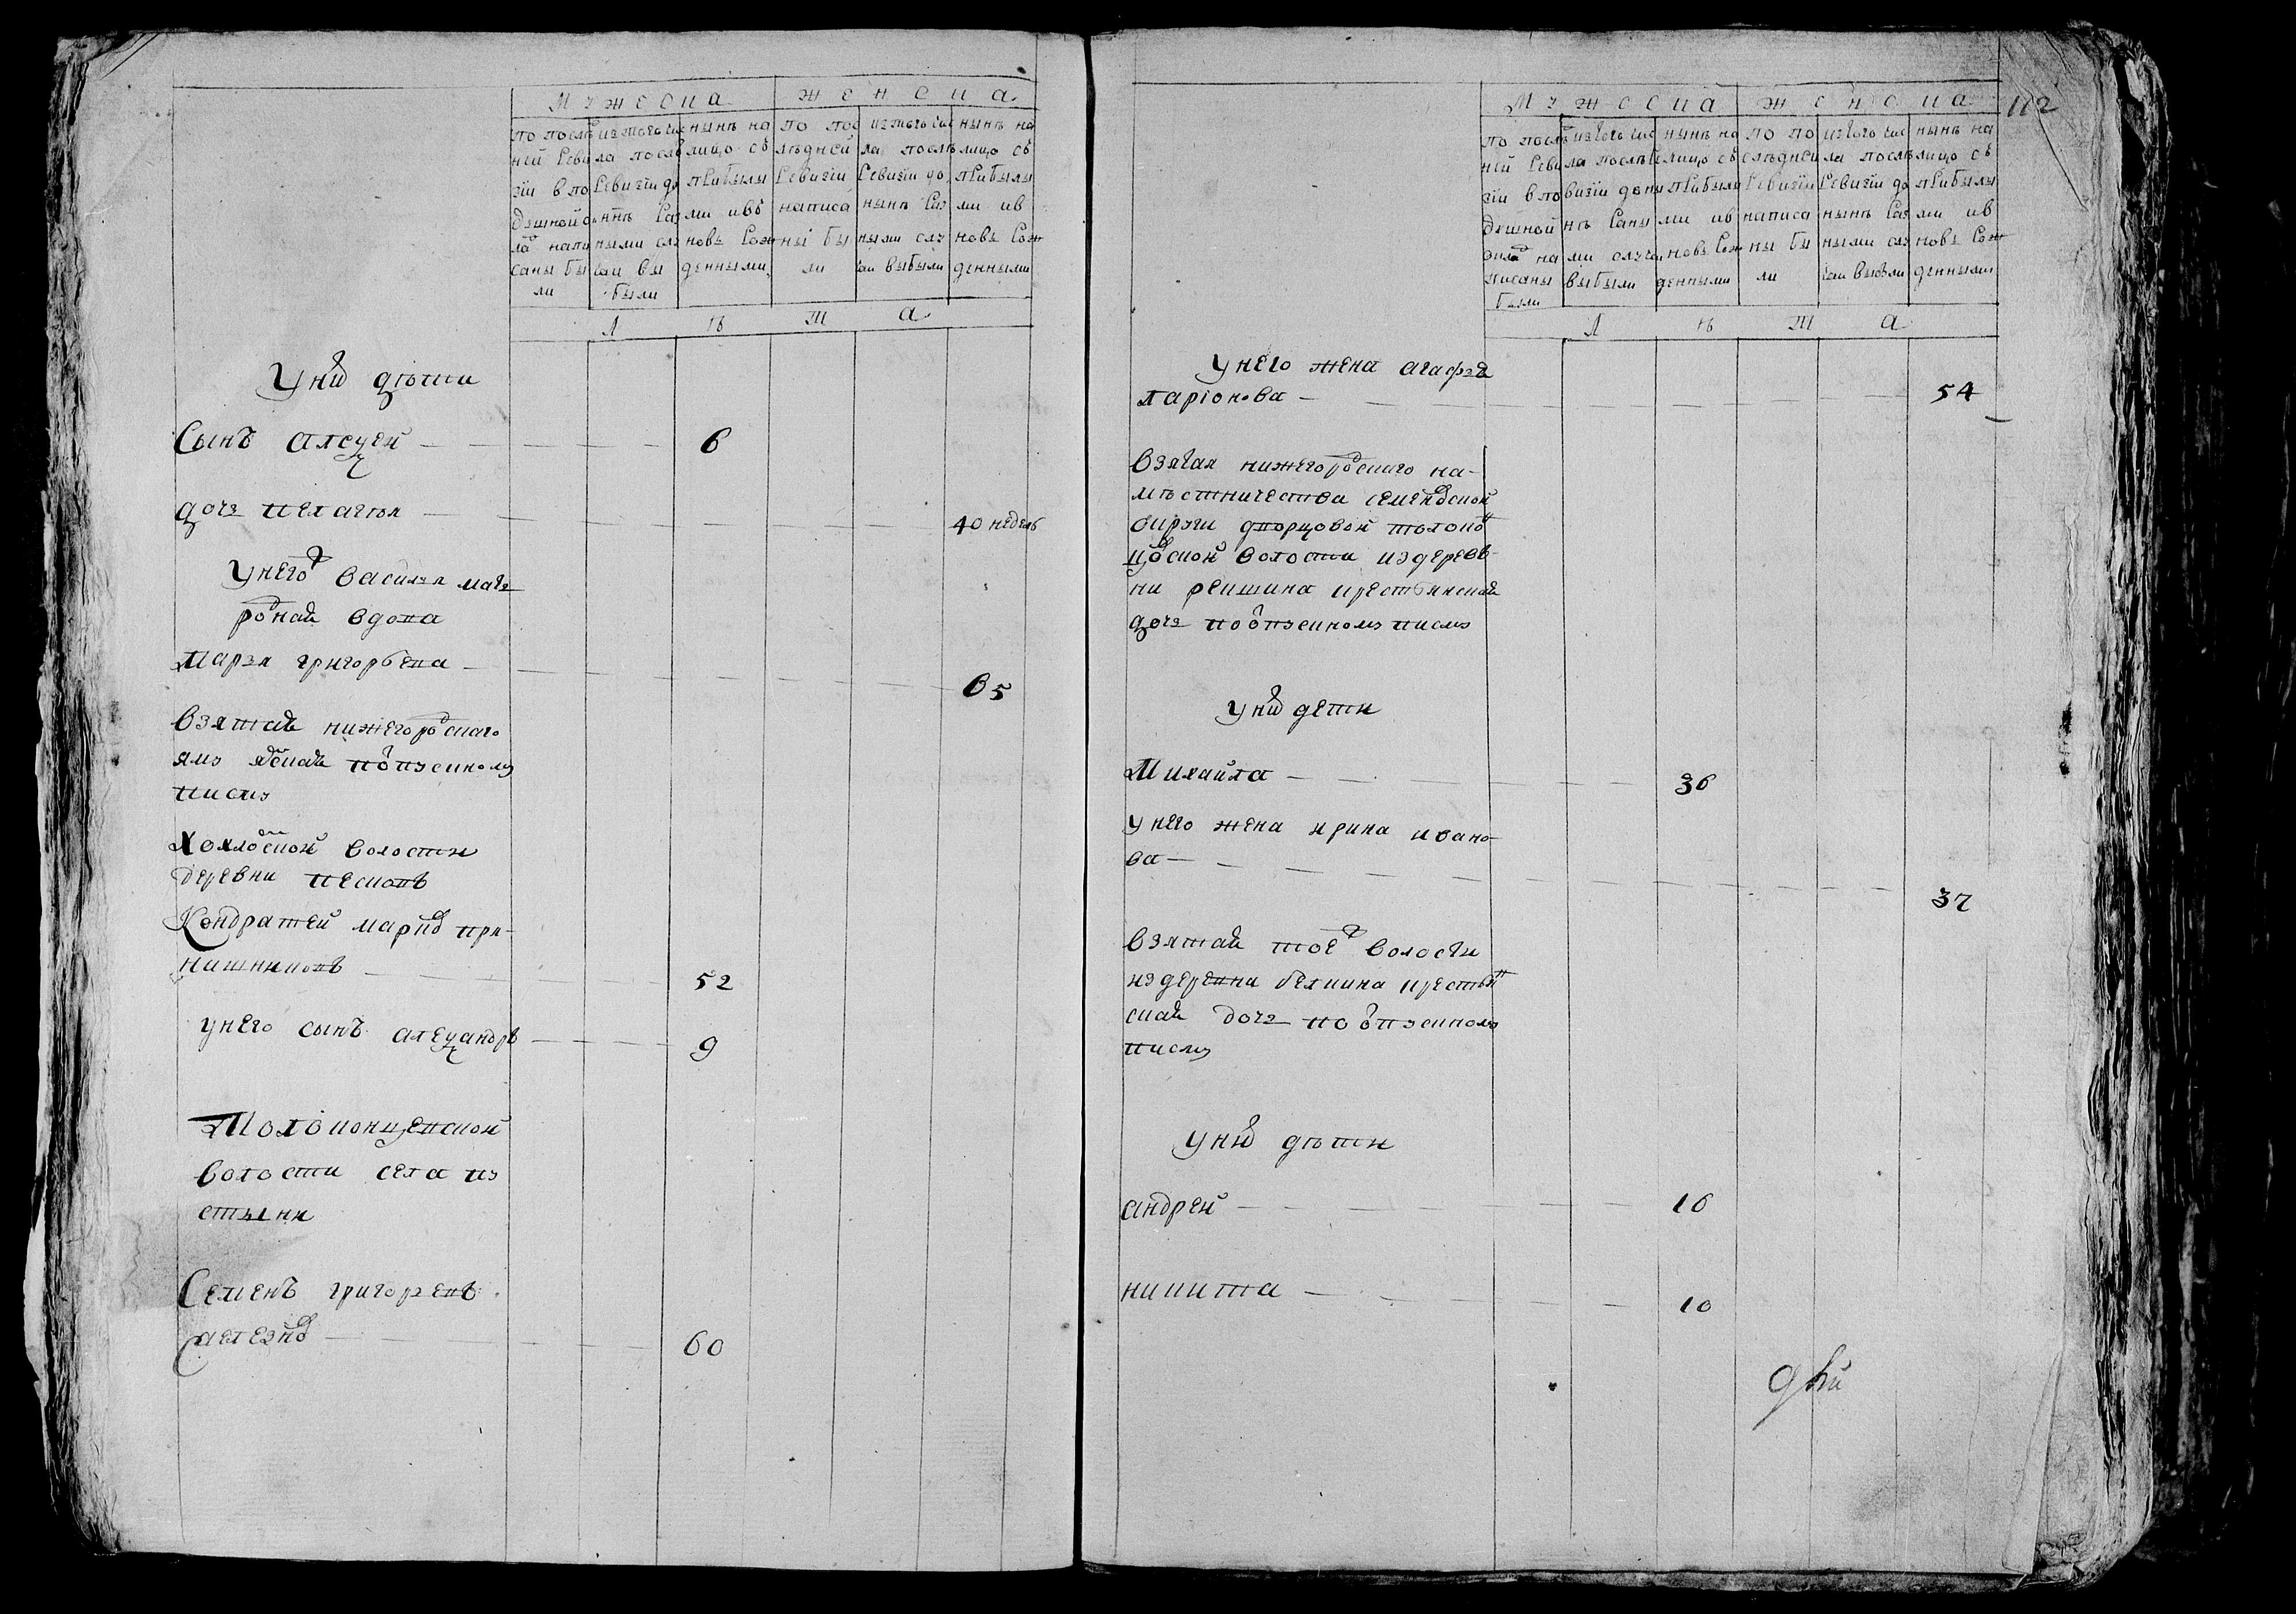 Мужеска женска
по последней ревизии в подушной окладъ написаны были
изтого числа после ревизии до ныне разными случаи выбыли
ныне на лицо съ прибылыми и въ новь рожденными
по последней ревизии написаны были
изтого числа после ревизии до ныне разными случаи выбыли
ныне на лицо съ прибылыми и въ новь рожденными
лѣта
У них дѣти
Сынъ алексей 6
дочь пелагея 40 недель
У него ж василья мать
родная вдова
Марья григорьева 65
взятая нижегородскаго
письму
волости
деревни песковъ
Кондратей марков при-
52
у него сынъ александръ 9
Толоконцевской
волости села пу-
стыни
Семенъ григорьевъ
60
112
Мужеска женска
по последней ревизии в подушной окладъ написаны были
изтого числа после ревизии до ныне разными случаи выбыли
ныне на лицо съ прибылыми и въ новь рожденными
по последней ревизии написаны были
изтого числа после ревизии до ныне разными случаи выбыли
ныне на лицо съ прибылыми и въ новь рожденными
лѣта
У него жена агафья
ларіонова 54
взятая нижегородскаго на-
мѣстничества семеновской
округи дворцовой толокон
цовской волости из дерев-
ни рекшина крестьянская
дочь по отпускному письму
У них дети
Михайла 36
у него жена ирина ивано-
ва 37
взятая тое ж волости
из деревни белкина крестьян
ская дочь по отпускному
письму
у них дѣти
андрей 16
никита 10